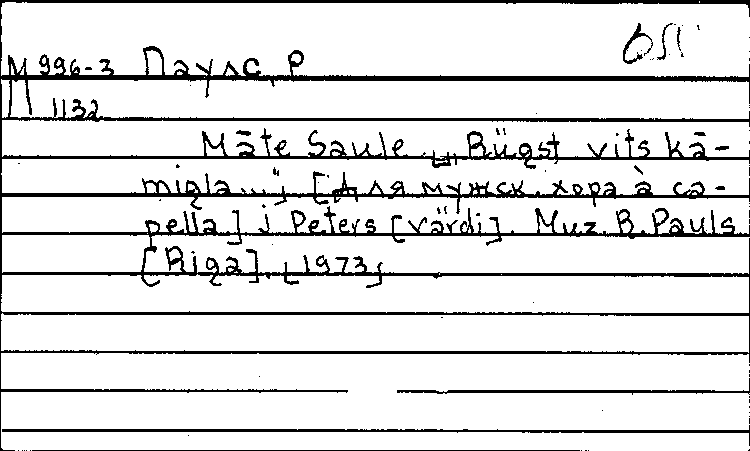 М 996-3 Паулс, Р
1132
Māte Saule „Rūgst vits kā-
migla..." [Для мужск. хора à ca-
pella.] J. Peters [värdi]. Muz. R. Pauls
[Riga]. [1973]